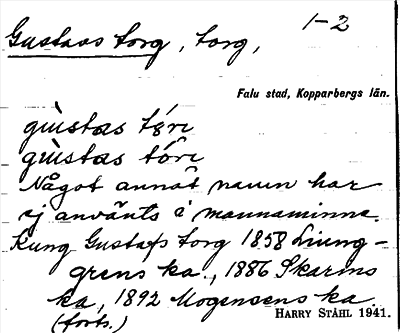 Gustavs torg, torg, 1-2
Falu stad, Kopparbergs län.
gùstas tǫ́rj
gùstas tǫ́rj
Något annat namn har
ej använts i mannaminne.
Kung Gustafs torg 1858 Ljung-
grens ka., 1886 Skarins
ka, 1892 Mogensens ka
(forts.)
HARRY STÅHL 1941.